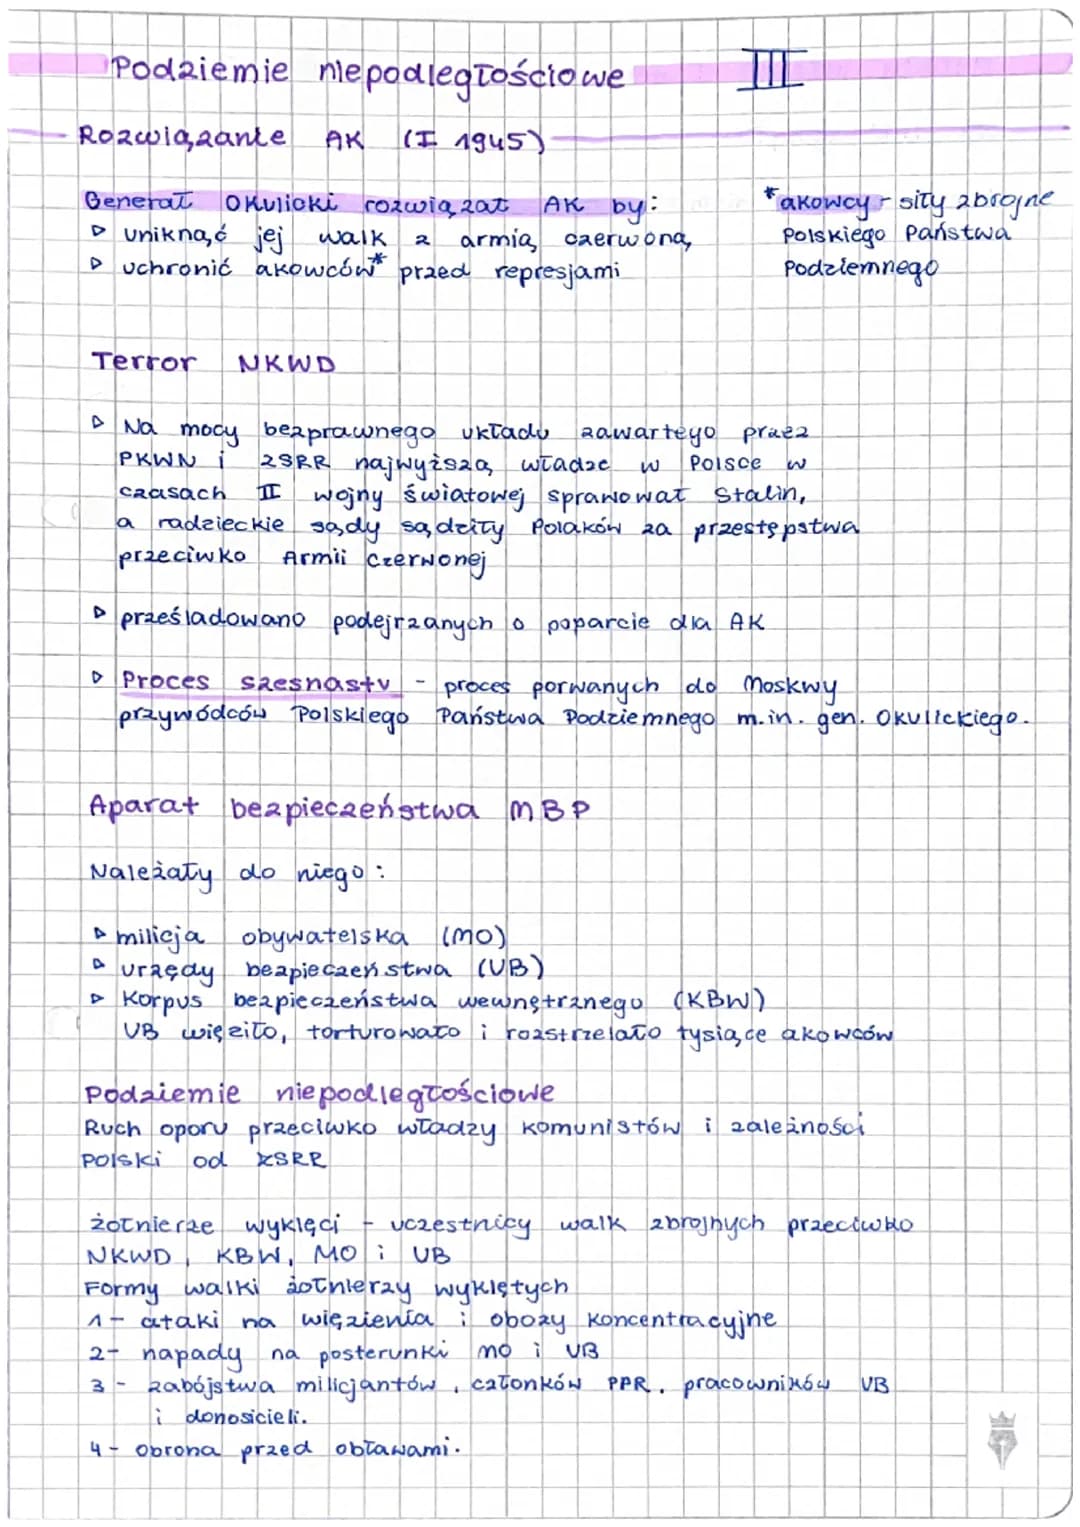 Podziemie niepodległościowe III
Rozwiązanie AK (I 1945)
Generał Okulicki rozwiązał AK by:
▷ uniknąć jej walk z armią czerwoną,
▷ uchronić akowców* przed represjami
*akowcy - siły zbrojne
Polskiego Państwa
Podziemnego
Terror NKWD
▷ Na mocy bezprawnego układu zawartego przez
PKWN i ZSRR najwyższą władzę w Polsce w
czasach II wojny światowej sprawował Stalin,
a radzieckie sądy sądziły Polaków za przestępstwa
przeciwko Armii Czerwonej
▷ prześladowano podejrzanych o poparcie dla AK
▷ Proces szesnastu - proces porwanych do Moskwy
przywódców Polskiego Państwa Podziemnego m.in. gen. Okulickiego.
Aparat bezpieczeństwa MBP
Należały do niego:
▷ milicja obywatelska (MO)
▷ urzędy bezpieczeństwa (UB)
▷ Korpus bezpieczeństwa wewnętrznego (KBW)
UB więziło, torturowało i rozstrzelało tysiące akowców
Podziemie niepodległościowe
Ruch oporu przeciwko władzy komunistów i zależności
Polski od ZSRR
żołnierze wyklęci - uczestnicy walk zbrojnych przeciwko
NKWD, KBW, MO i UB
Formy walki żołnierzy wyklętych
1- ataki na więzienia i obozy koncentracyjne
2- napady na posterunki MO i UB
3 - zabójstwa milicjantów, członków PPR, pracowników UB
i donosicieli.
4- obrona przed obławami.